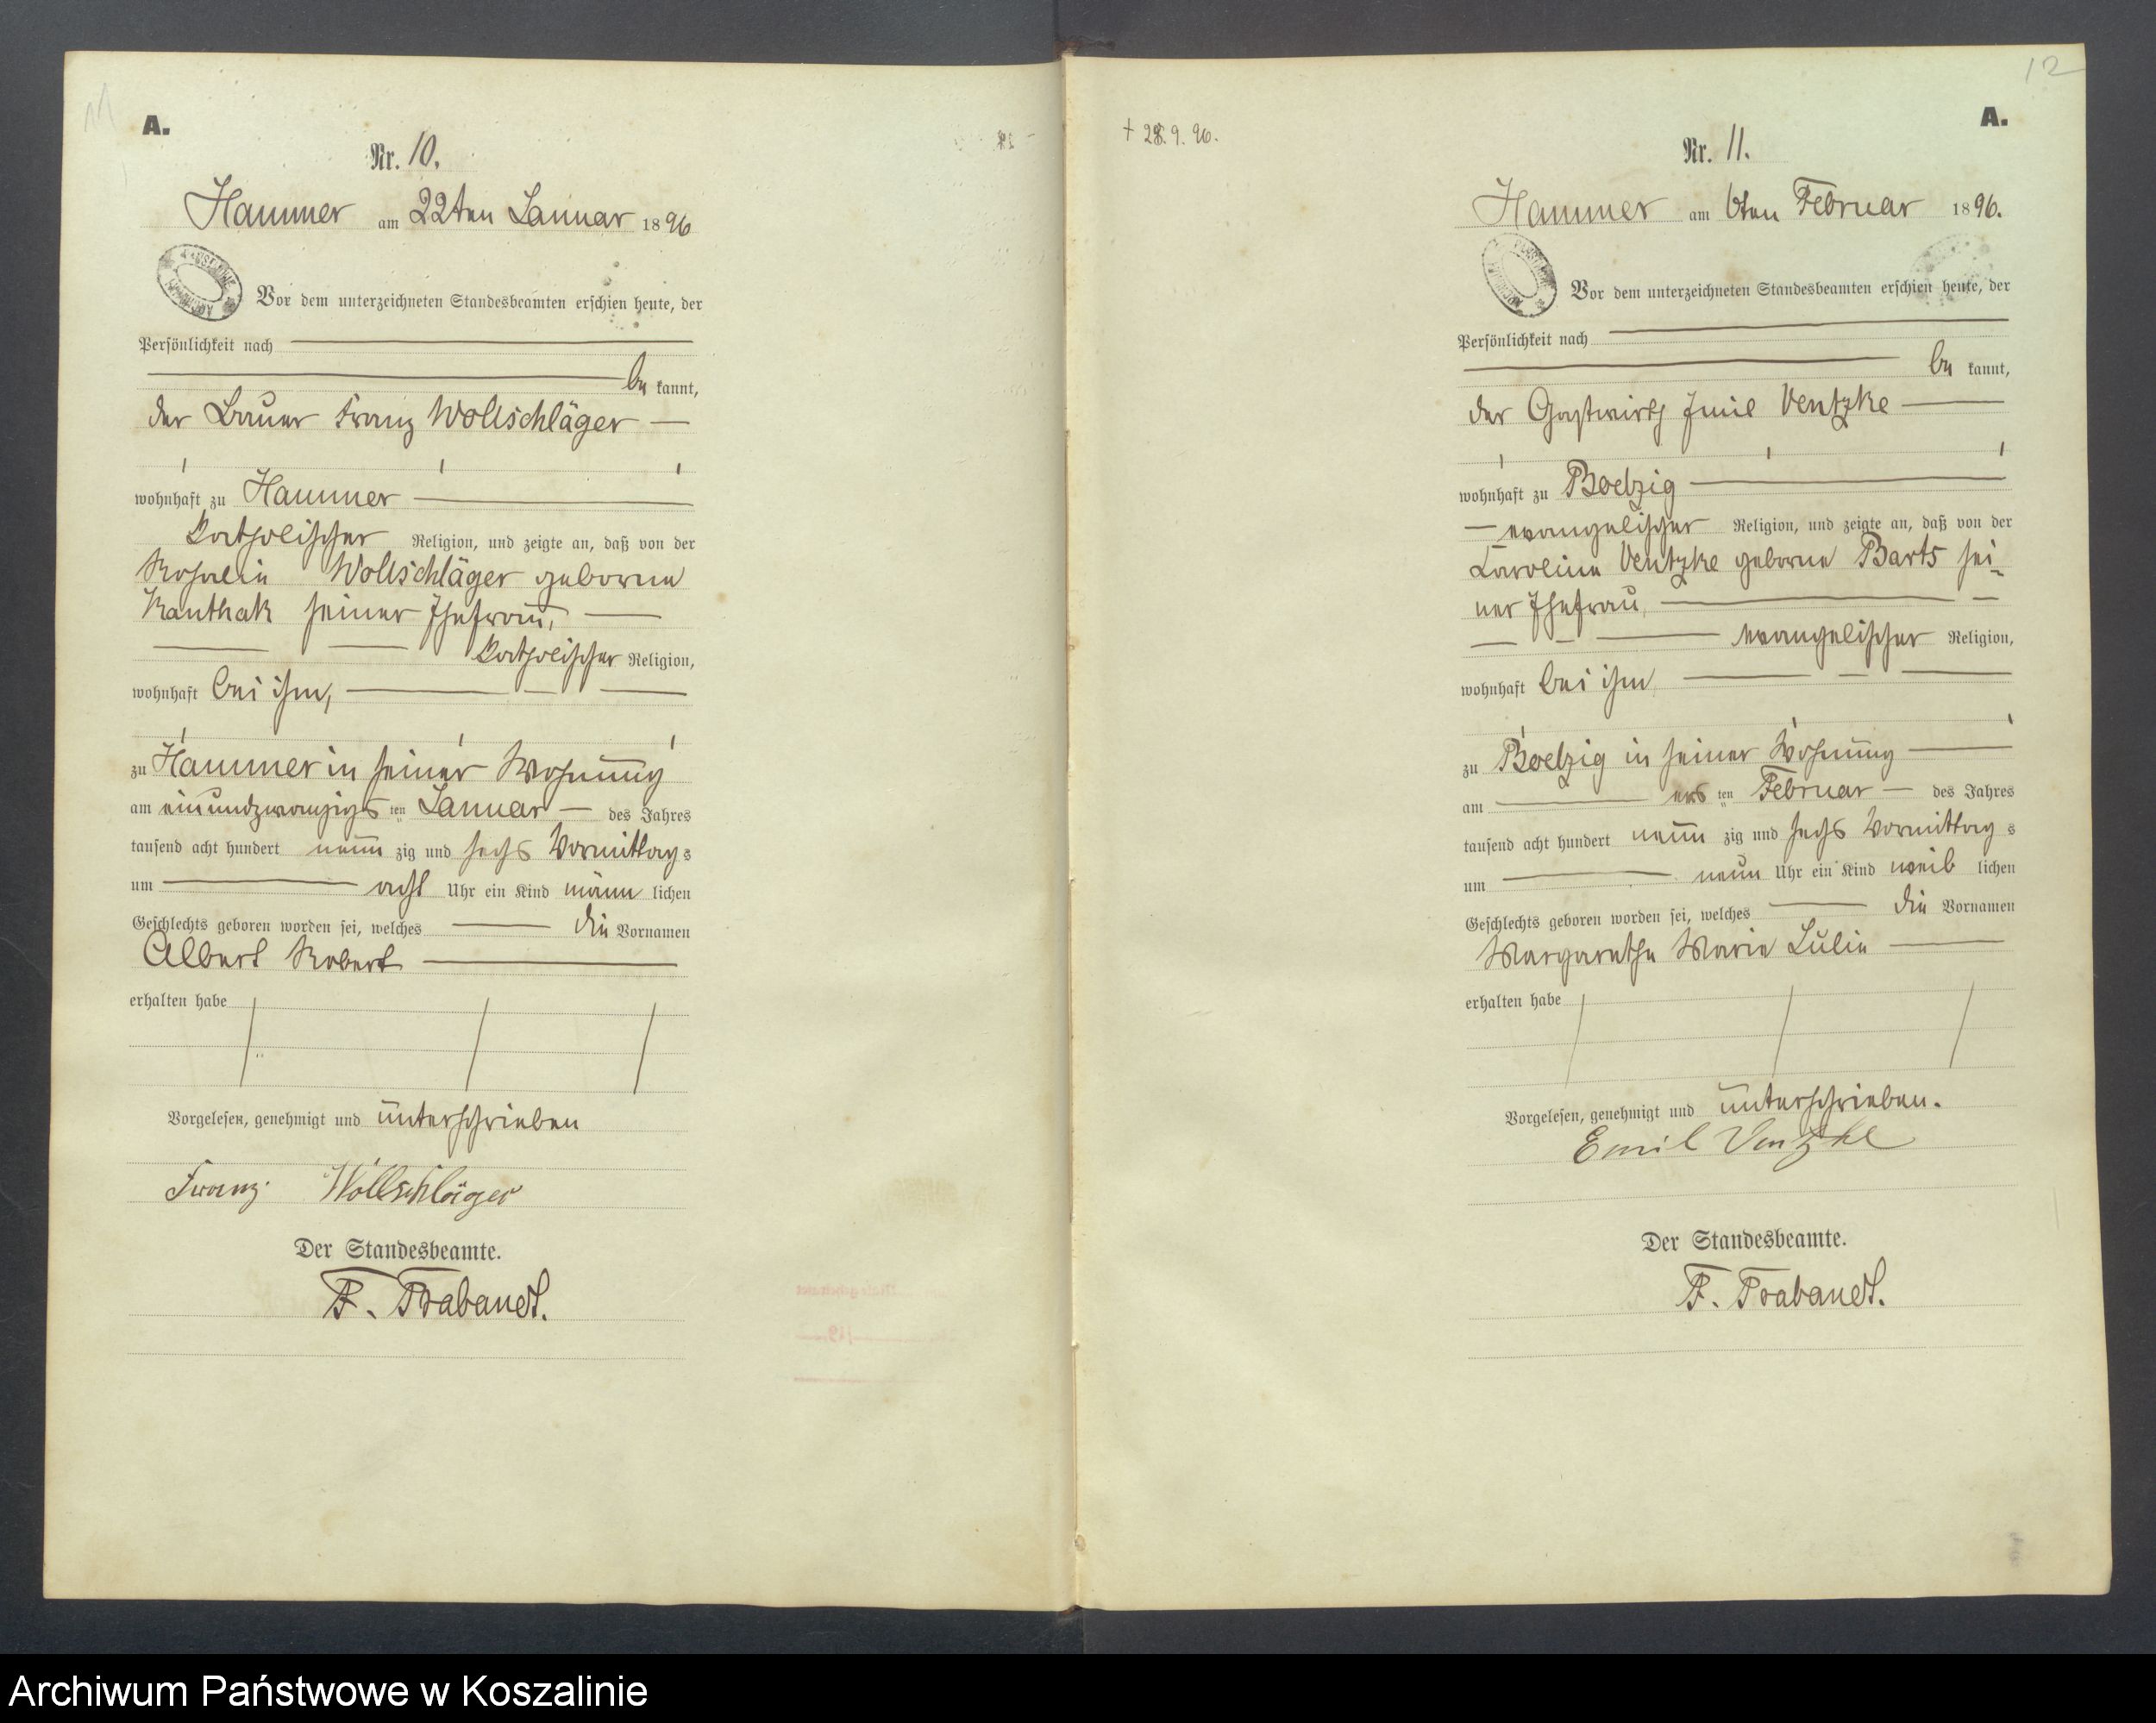 11
A.
Nr. 10.
Hammer am 22ten Januar 1896
Vor dem unterzeichneten Standesbeamten erschien heute, der
Persönlichkeit nach
be kannt,
der Bauer Franz Wollschläger
wohnhaft zu Hammer
katholischer Religion, und zeigte an, daß von der
Rosalie Wollschläger geborne
Kanthak seiner Ehefrau,
katholischer Religion,
wohnhaft bei ihm,
zu Hammer in seiner Wohnung
am einundzwanzigs ten Januar des Jahres
tausend acht hundert neun zig und sechs Vormittag s
um acht Uhr ein Kind männ lichen
Geschlechts geboren worden sei, welches die Vornamen
Albert Robert
erhalten habe
Vorgelesen, genehmigt und unterschrieben
Franz Wollschläger
Der Standesbeamte.
F. Brabandt.
12
+ 28.9.96.
A.
Nr. 11.
Hammer am 6ten Februar 1896.
Vor dem unterzeichneten Standesbeamten erschien heute, der
Persönlichkeit nach
be kannt,
der Gastwirth Emil Ventzke
wohnhaft zu Boelzig
evangelischer Religion, und zeigte an, daß von der
Karoline Ventzke geborne Barts sei-
ner Ehefrau,
evangelischer Religion,
wohnhaft bei ihm
zu Boelzig in seiner Wohnung
am ers ten Februar des Jahres
tausend acht hundert neun zig und sechs Vormittag s
um neun Uhr ein Kind weib lichen
Geschlechts geboren worden sei, welches die Vornamen
Margarethe Marie Julie
erhalten habe
Vorgelesen, genehmigt und unterschrieben.
Emil Ventzke
Der Standesbeamte.
F. Brabandt.
Archiwum Państwowe w Koszalinie